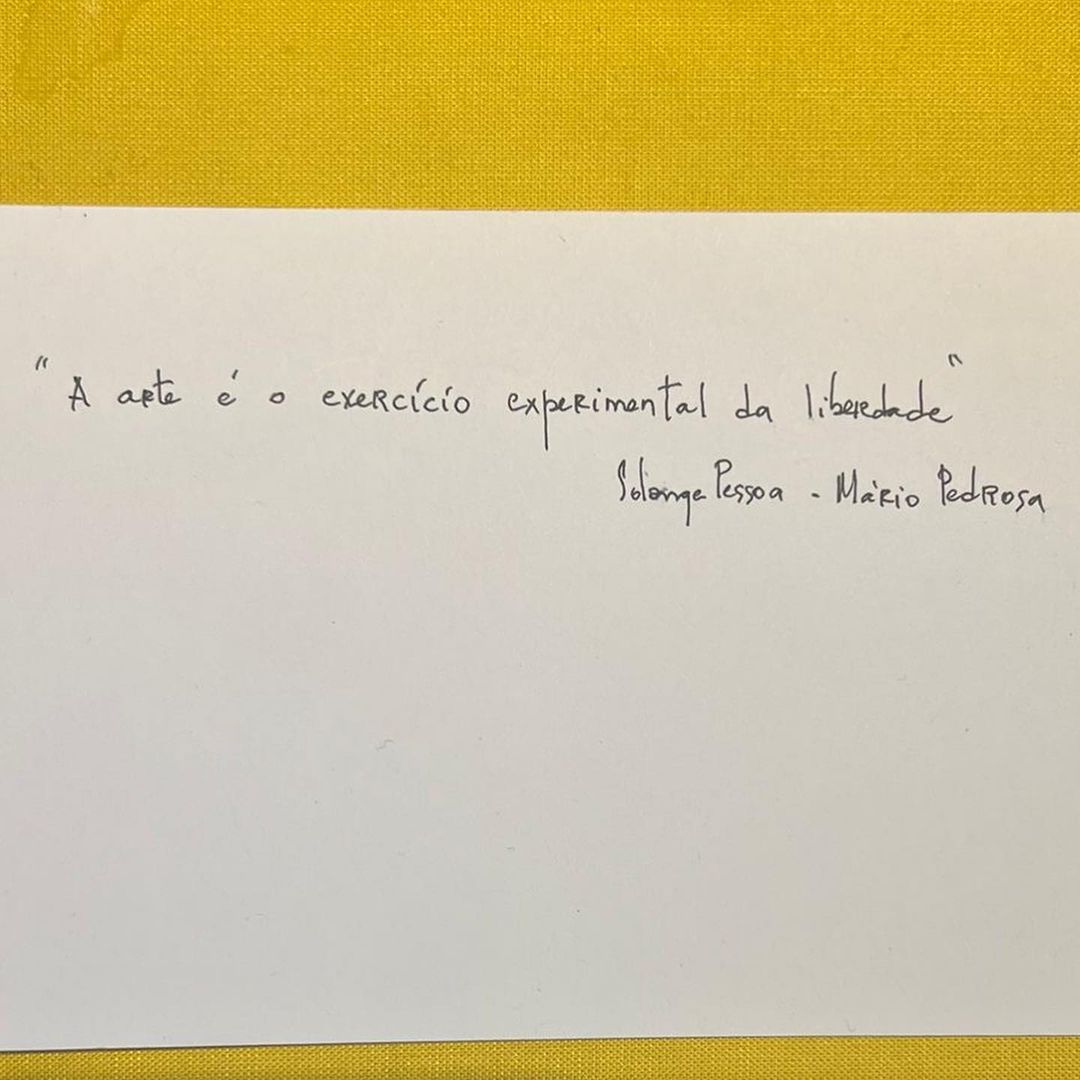 "A arte é o exercício experimental da liberdade"
Solange Pessoa - Mário Pedrosa